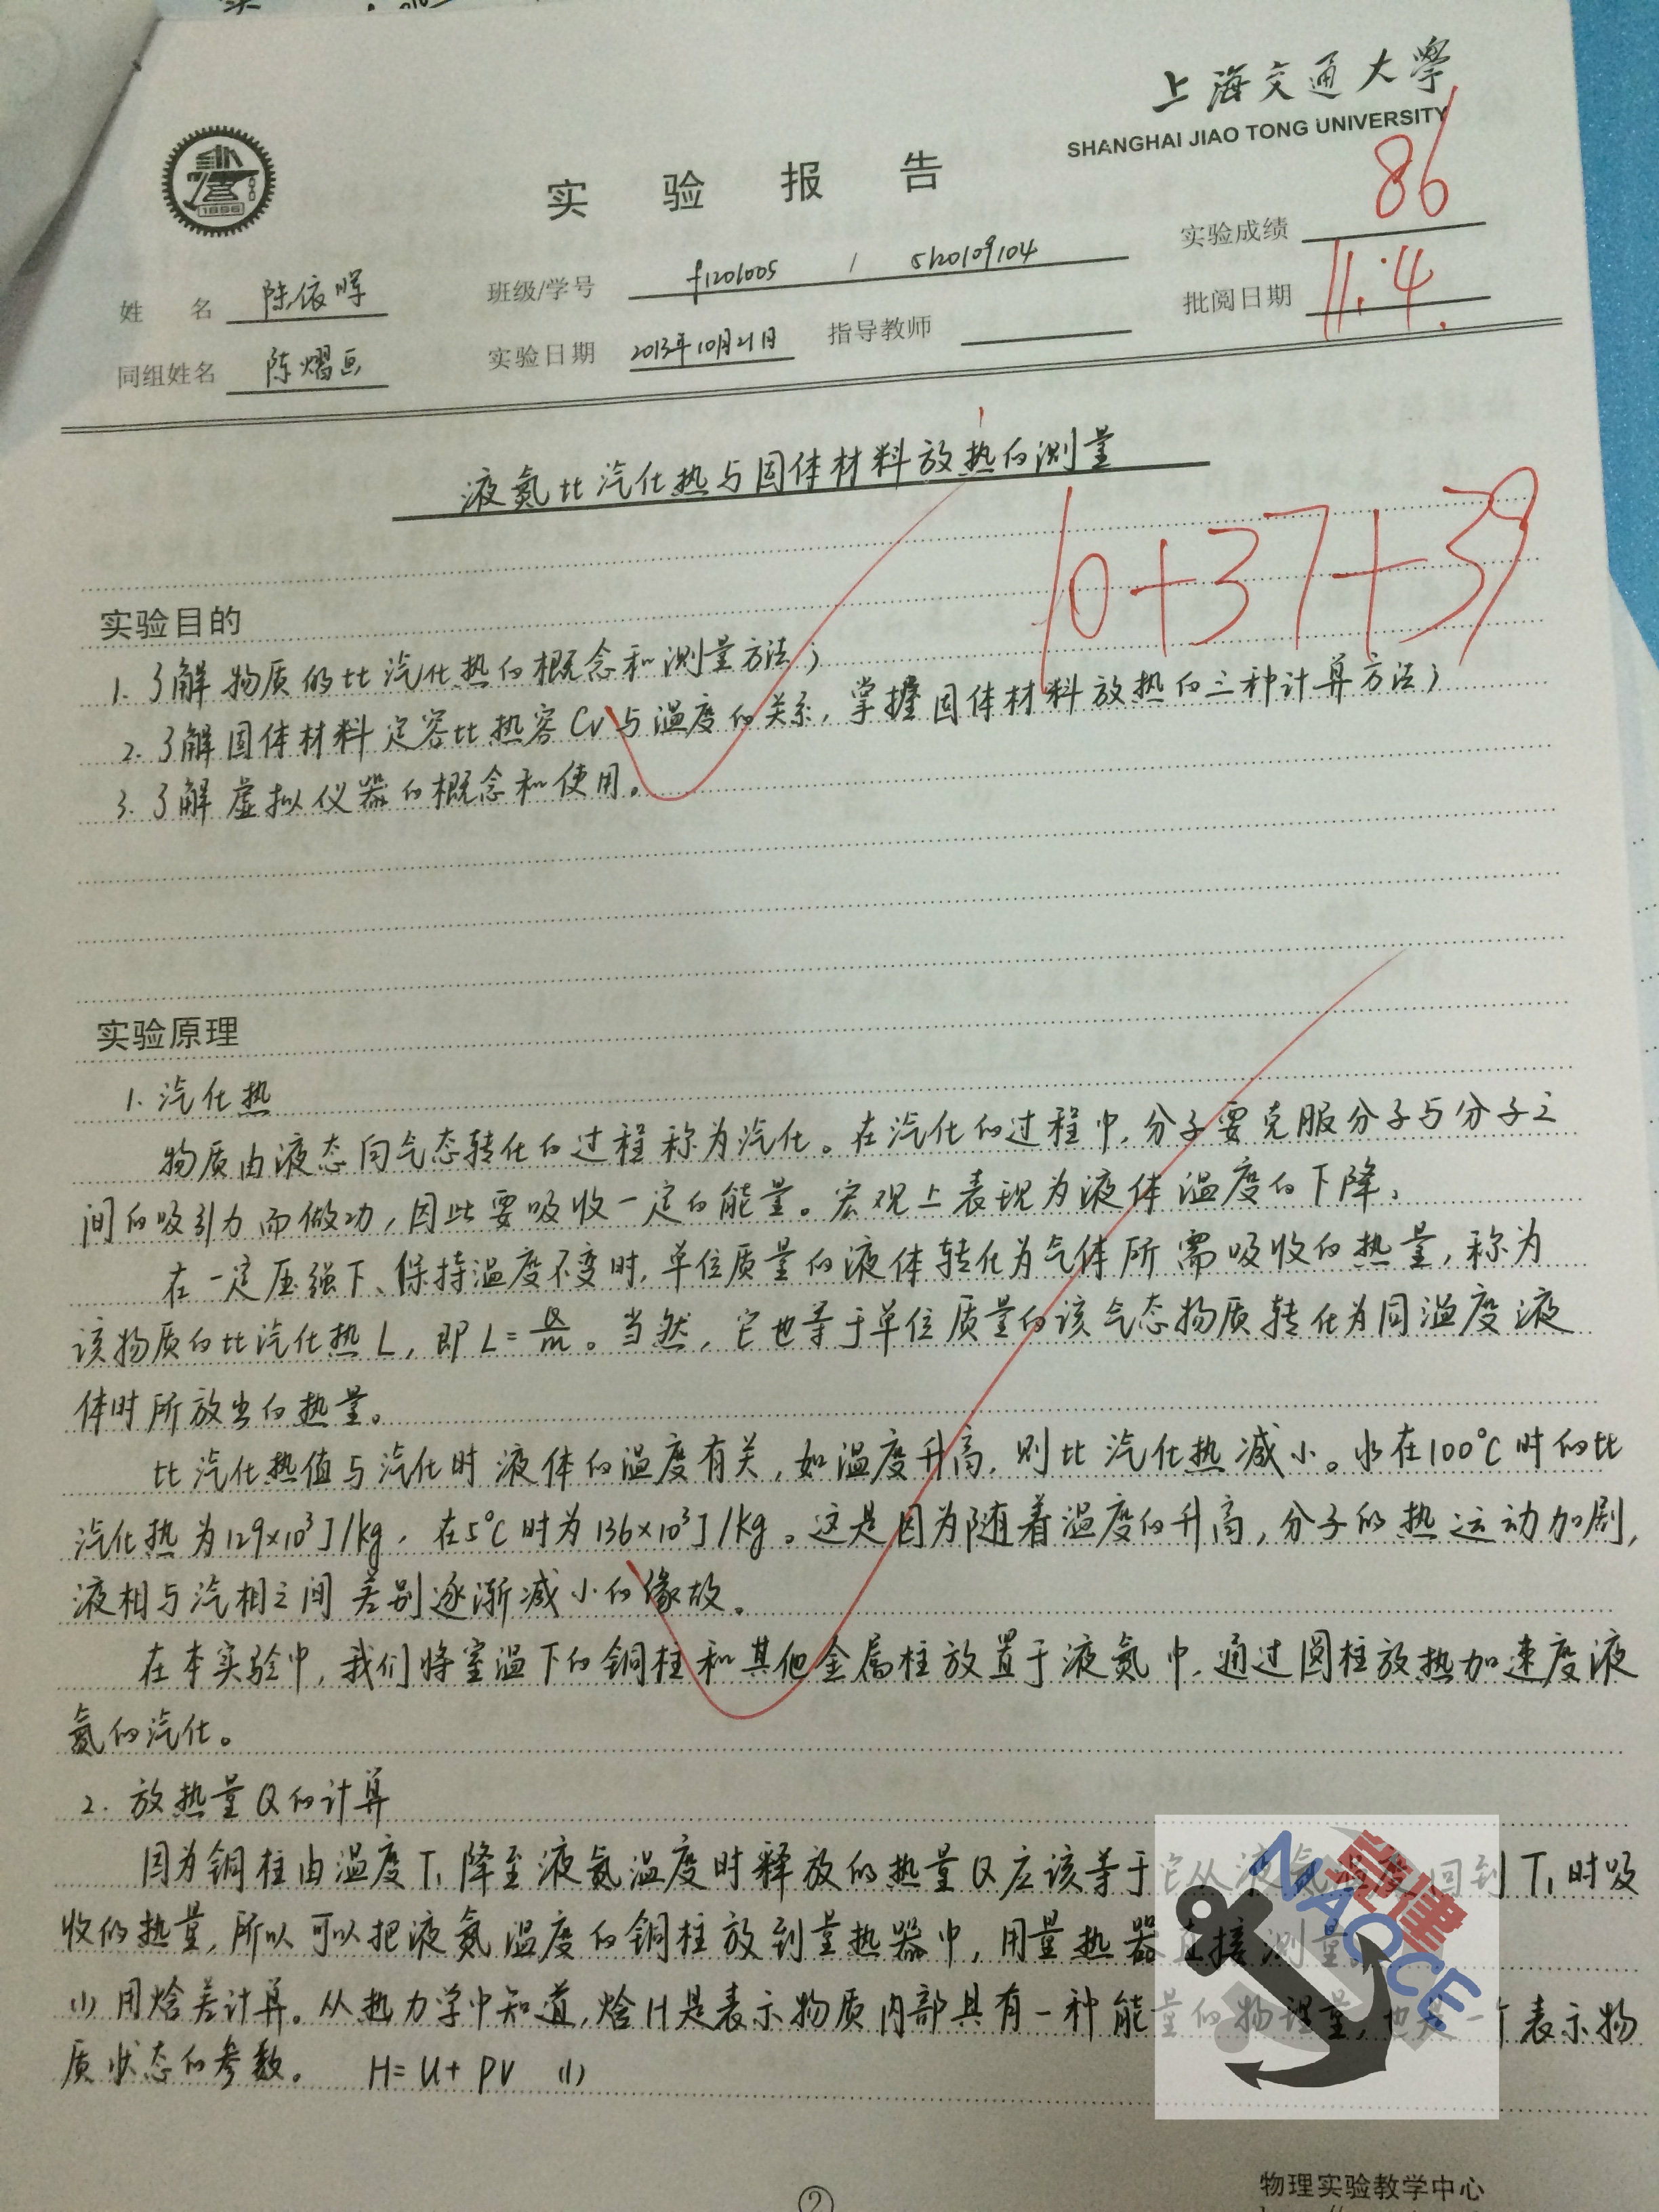 上海交通大学
SHANGHAI JIAO TONG UNIVERSITY
1896
实验报告
实验成绩 86
姓名 陈依晖 班级/学号 f1201005 / 5120109104
批阅日期 11.4.
同组姓名 陈熠画 实验日期 2013年10月21日 指导教师
液氮比汽化热与固体材料放热的测量
10+37+39
实验目的
1. 了解物质的比汽化热的概念和测量方法;
2. 了解固体材料定容比热容Cv与温度的关系,掌握固体材料放热的三种计算方法;
3. 了解虚拟仪器的概念和使用。
实验原理
1. 汽化热
物质由液态向气态转化的过程称为汽化。在汽化的过程中,分子要克服分子与分子之
间的吸引力而做功,因此要吸收一定的能量。宏观上表现为液体温度的下降。
在一定压强下、保持温度不变时,单位质量的液体转化为气体所需吸收的热量,称为
该物质的比汽化热L,即L=Q/m。当然,它也等于单位质量的该气态物质转化为同温度液
体时所放出的热量。
比汽化热值与汽化时液体的温度有关,如温度升高,则比汽化热减小。水在100°C时的比
汽化热为129×10³J/kg,在5°C时为136×10³J/kg。这是因为随着温度的升高,分子的热运动加剧,
液相与汽相之间差别逐渐减小的缘故。
在本实验中,我们将室温下的铜柱和其他金属柱放置于液氮中,通过圆柱放热加速度液
氮的汽化。
2. 放热量Q的计算
因为铜柱由温度T₁降至液氮温度时释放的热量Q应该等于它从液氮温度回到T₁时吸
收的热量,所以可以把液氮温度的铜柱放到量热器中,用量热器直接测量。
(1) 用焓差计算。从热力学中知道,焓H是表示物质内部具有一种能量的物理量,也是一个表示物
质状态的参数。 H=U+PV (1)
船建
NAOCE
②
物理实验教学中心